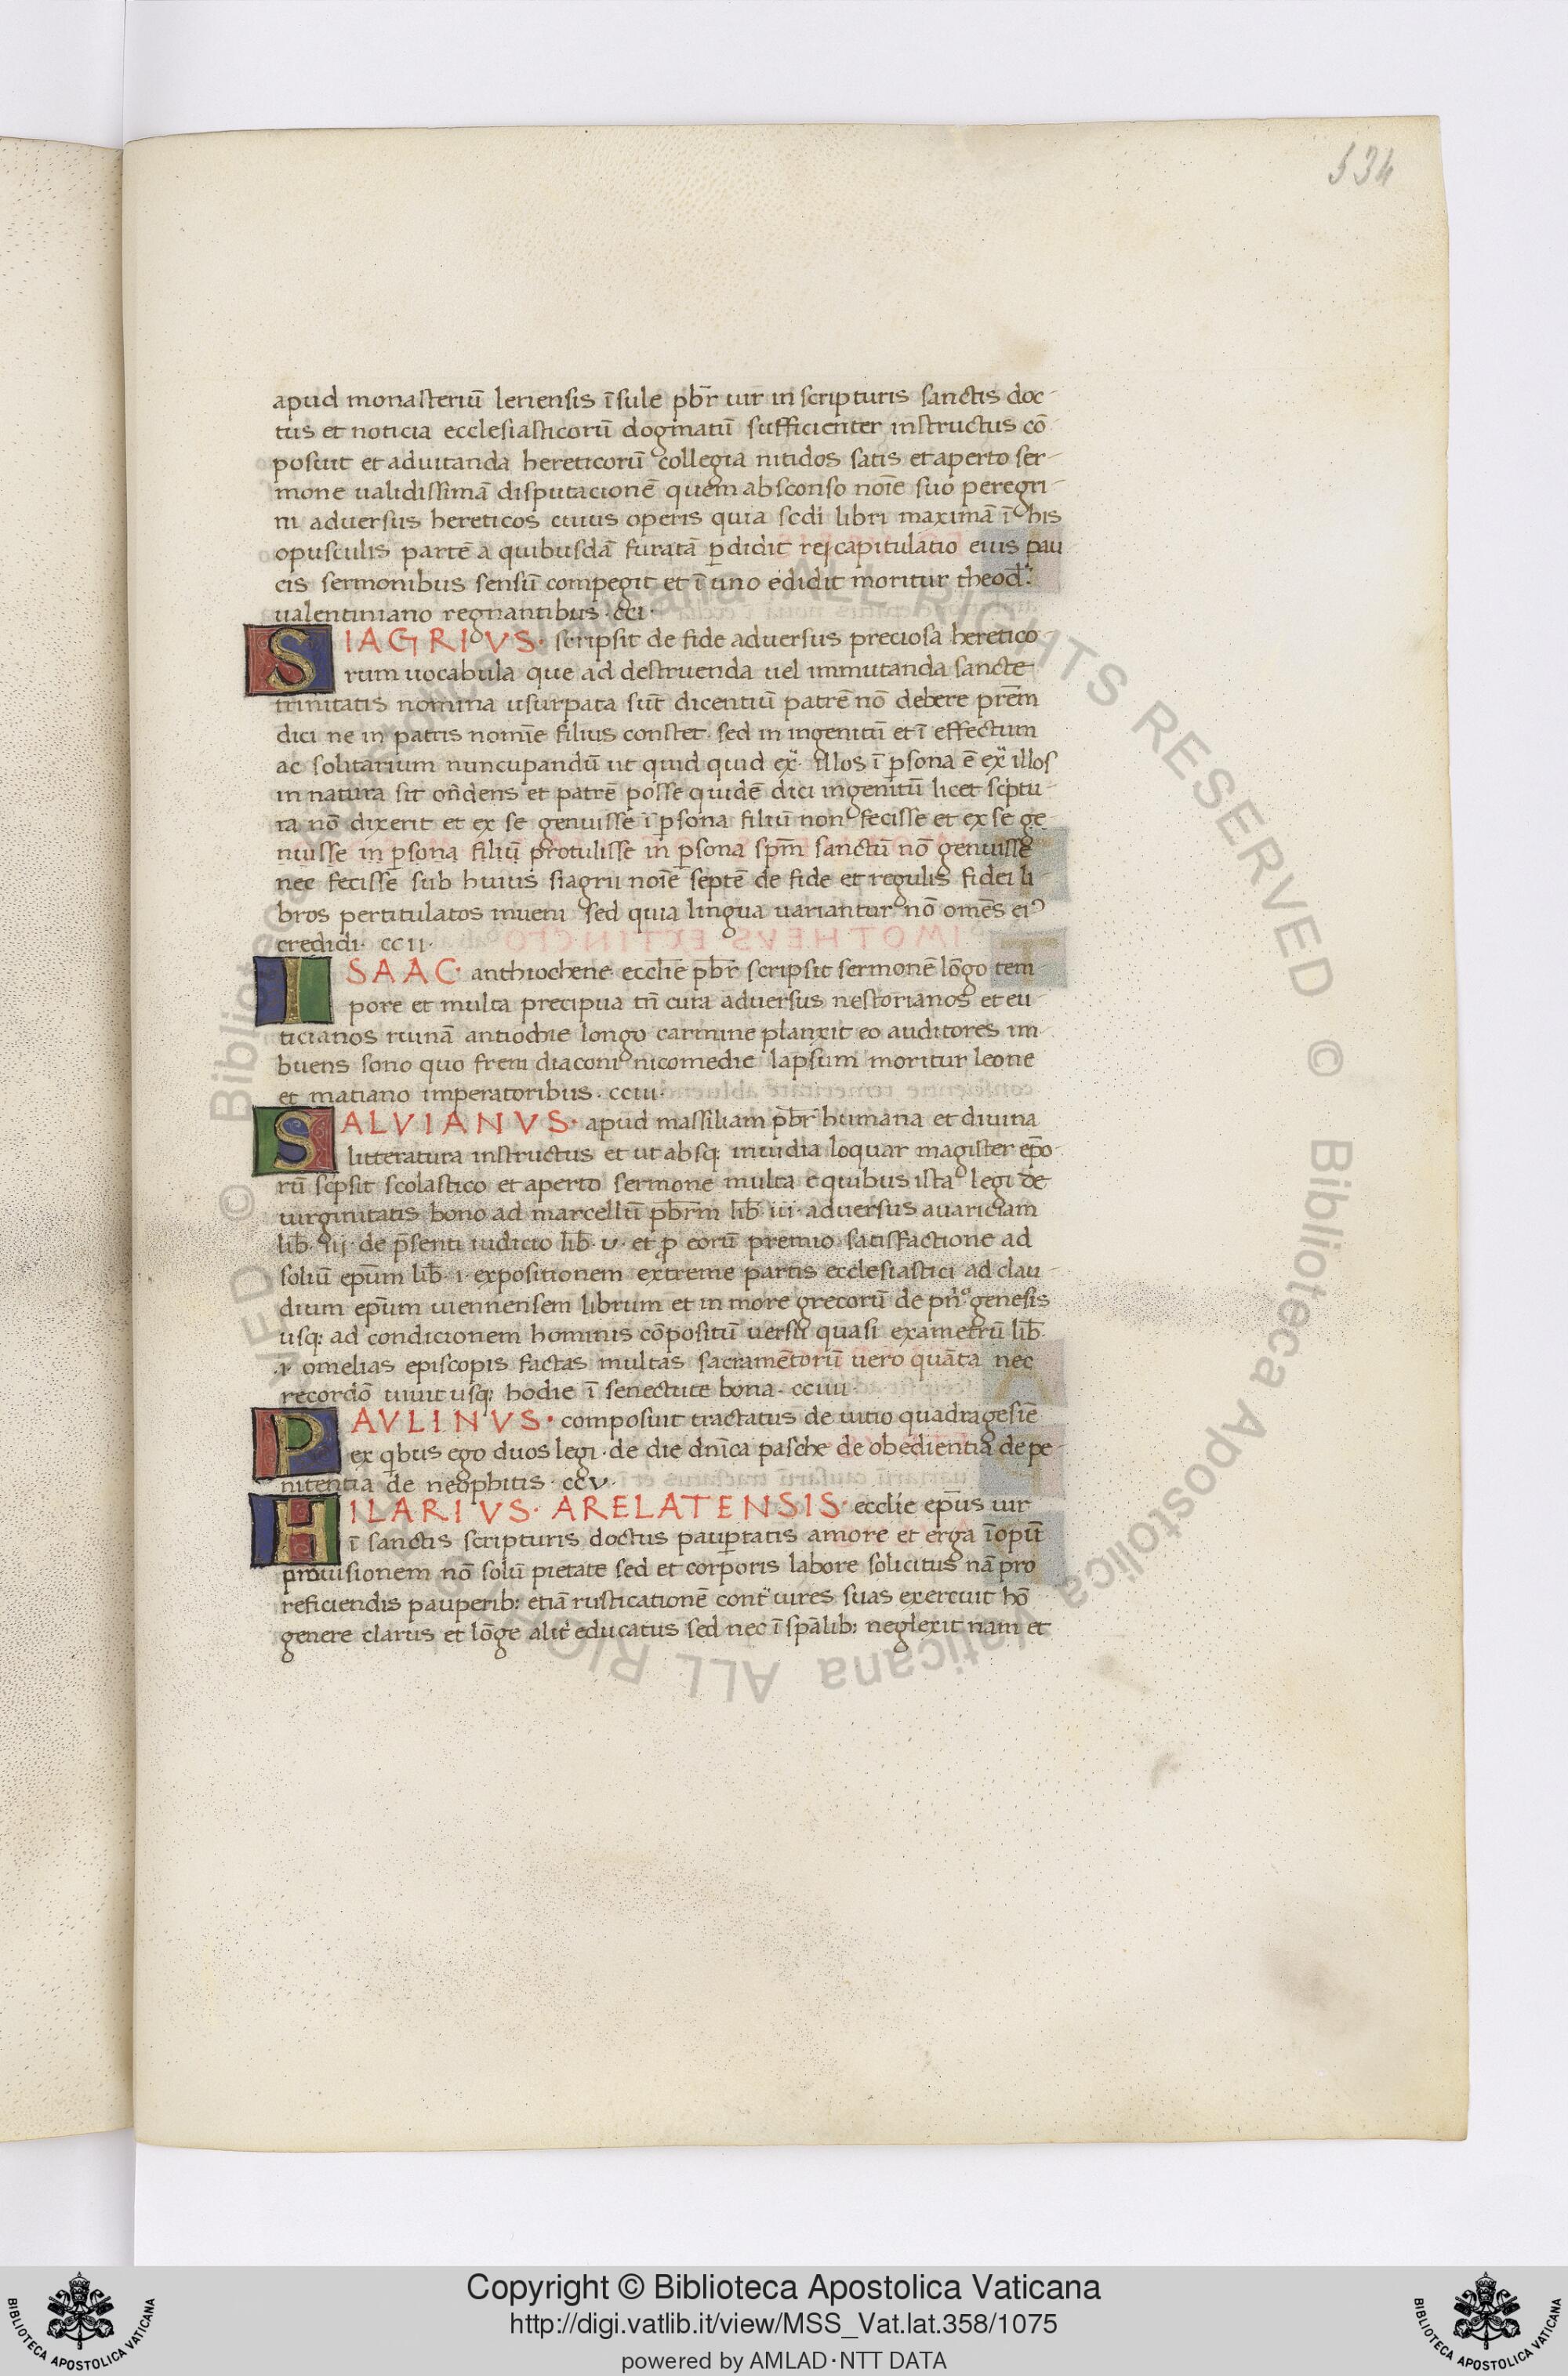 534
apud monasteriū leriensis īsule pb̄r uir in scripturis sanctis doc-
tus et noticia ecclesiasticorū dogmatū sufficienter instructus cō-
posuit et aduitanda hereticorū collegia nitidos satis et aperto ser-
mone ualidissimā disputacionē quem absconso noīe suo peregri-
ni aduersus hereticos cuius operis quia scdi libri maximā ī his
opusculis partē a quibusdā furatā p̄didit rei capitulatio eius pau
cis sermonibus sensū compegit et ī uno edidit moritur theod̄.
ualentiniano regnantibus. cci.
SIAGRIVS. scripsit de fide aduersus preciosa heretico-
rum uocabula que ad destruenda uel immutanda sancte
trinitatis nomina usurpata sūt dicentiū patrē nō debere prēm
dici ne in patris nomīe filius constet. sed in ingenitū et ī effectum
ac solitarium nuncupandū ut quid quid ex̄. illos ī p̄sona ē ex̄ illos
in natura sit on̄dens et patrē posse quidē dici ingenitū licet scp̄tu-
ra nō dixerit et ex se genuisse ī p̄sona filiū non fecisse et ex se ge-
nuisse in p̄sona filiū protulisse in p̄sona spm̄ sanctū nō genuisse
nec fecisse sub huius siagrii noīe septē de fide et regulis fidei li-
bros pertitulatos inueni sed quia lingua uariantur nō omēs ei9
credidi. ccii.
ISAAC. anthiochene ecclīe pb̄r scripsit sermonē lōgo tem-
pore et multa precipua tn̄ cura aduersus nestorianos et eu-
ticianos ruinā antiochie longo carmine planxit eo auditores im-
buens sono quo frem diaconi nicomedie lapsum moritur leone
et matiano imperatoribus. cciii.
SALVIANVS. apud massiliam pb̄r humana et diuina
litteratura instructus et ut absq; inuidia loquar magister epō-
rū scp̄sit scolastico et aperto sermone multa e quibus ista legi de
uirginitatis bono ad marcellū pb̄rm lib̄. iii. aduersus auariciam
lib̄. iiij. de p̄senti iudicio lib̄. v. et p̄ eorū premio satisfactione ad
soliū ep̄um lib̄. i. expositionem extreme partis ecclesiastici ad clau-
dium ep̄um uiennensem librum et in more grecorū de pn̄.º genesis
usq; ad condicionem hominis cōpositū uersu quasi exametrū lib̄.
.i. omelias episcopis factas multas sacramētorū uero quāta nec
recordō uiuit usq; hodie ī senectute bona. cciiii.
PAVLINVS. composuit tractatus de initio quadragesīe
ex qbus ego duos legi. de die dnīca pasche de obedientia de pe-
nitentia de neophitis. ccv.
HILARIVS. ARELATENSIS. ecclīe ep̄us uir
ī sanctis scripturis doctus paup̄tatis amore et erga īopū
prouisionem nō solū pietate sed et corporis labore solicitus nā pro
reficiendis pauperib; etiā rusticationē cont̄ uires suas exercuit hō
genere clarus et lōge alit̄ educatus sed nec ī spālib; neglexit nam et
© Biblioteca Apostolica Vaticana ALL RIGHTS RESERVED
© Biblioteca Apostolica Vaticana ALL RIGHTS RESERVED
Copyright © Biblioteca Apostolica Vaticana
http://digi.vatlib.it/view/MSS_Vat.lat.358/1075
powered by AMLAD·NTT DATA
BIBLIOTECA APOSTOLICA VATICANA
BIBLIOTECA APOSTOLICA VATICANA